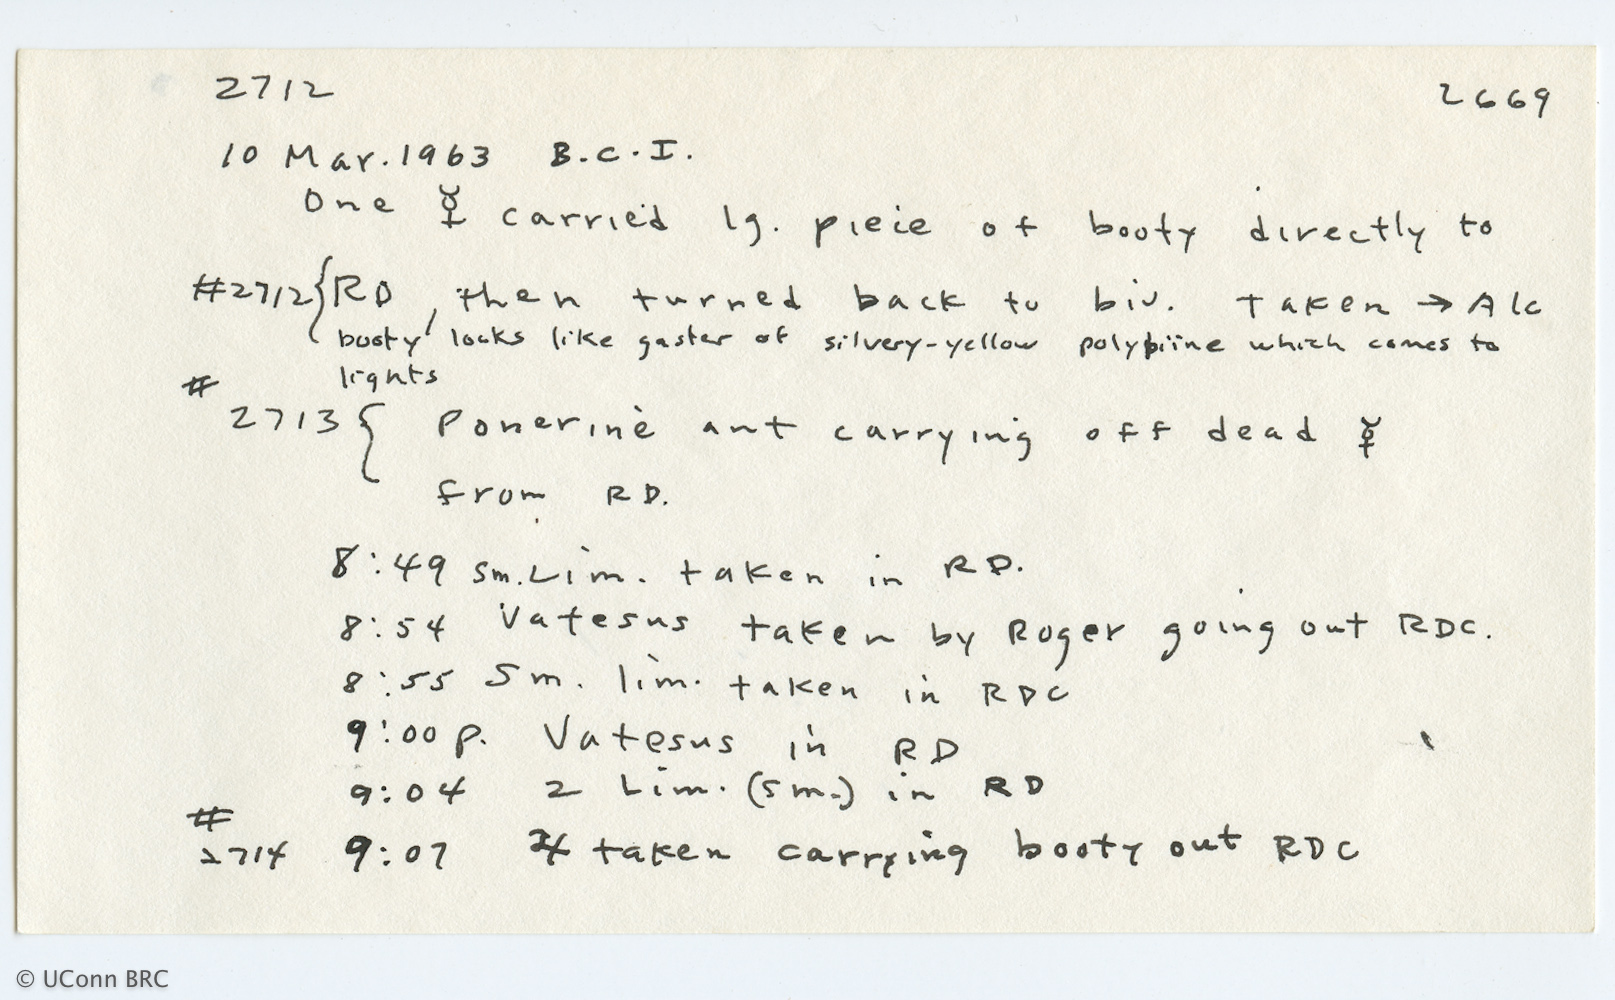 2712 2669
10 Mar. 1963 B.C.I.
One ☿ carried lg. pieie of booty directly to
#2712 { RD, then turned back to biv. Taken → Alc
booty looks like gaster of silvery-yellow polybiine which comes to
lights
#
2713 { Ponerine ant carrying off dead ☿
from RD.
8:49 sm. Lim. taken in RD.
8:54 Vatesus taken by Roger going out RDC.
8:55 Sm. lim. taken in RDC
9:00 p. Vatesus in RD
9:04 2 Lim. (sm.) in RD
#
2714 9:07 taken carrying booty out RDC
© UConn BRC